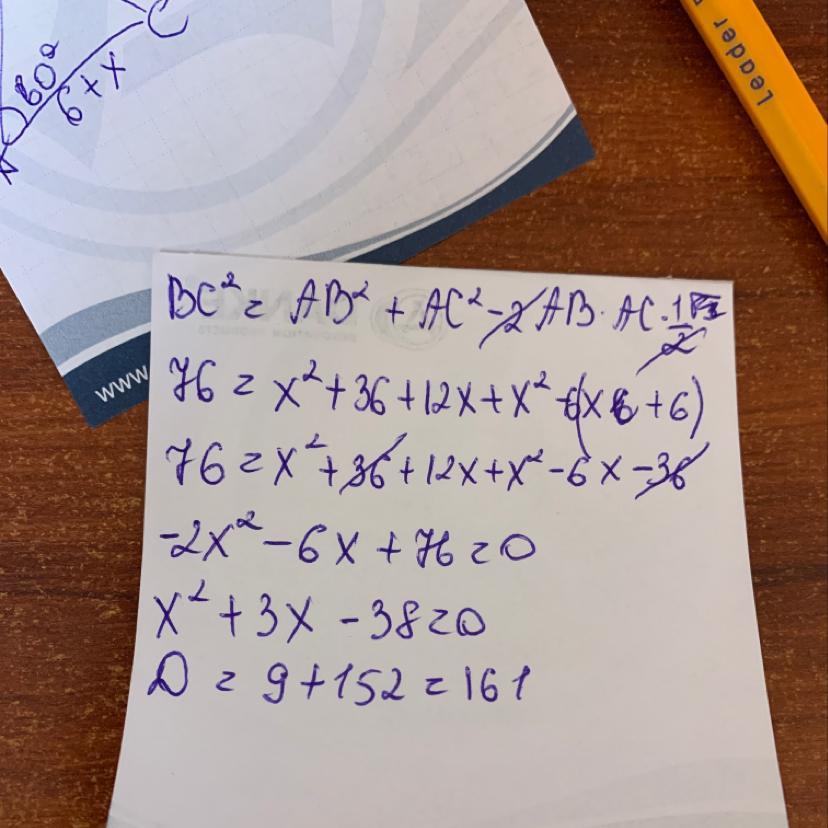 C
60°
6+x
Leader
www.
BC² = AB² + AC² - 2AB · AC · 1/2
76 = x² + 36 + 12x + x² - 6(x + 6)
76 = x² + 36 + 12x + x² - 6x - 36
-2x² - 6x + 76 = 0
x² + 3x - 38 = 0
D = 9 + 152 = 161